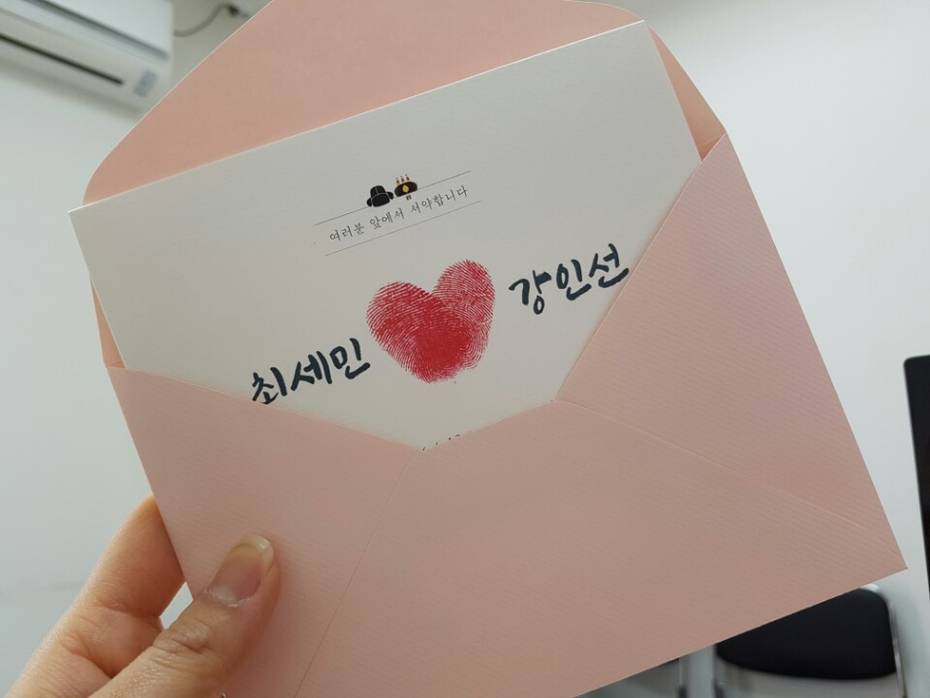 여러분 앞에서 서약합니다
최세민 강인선